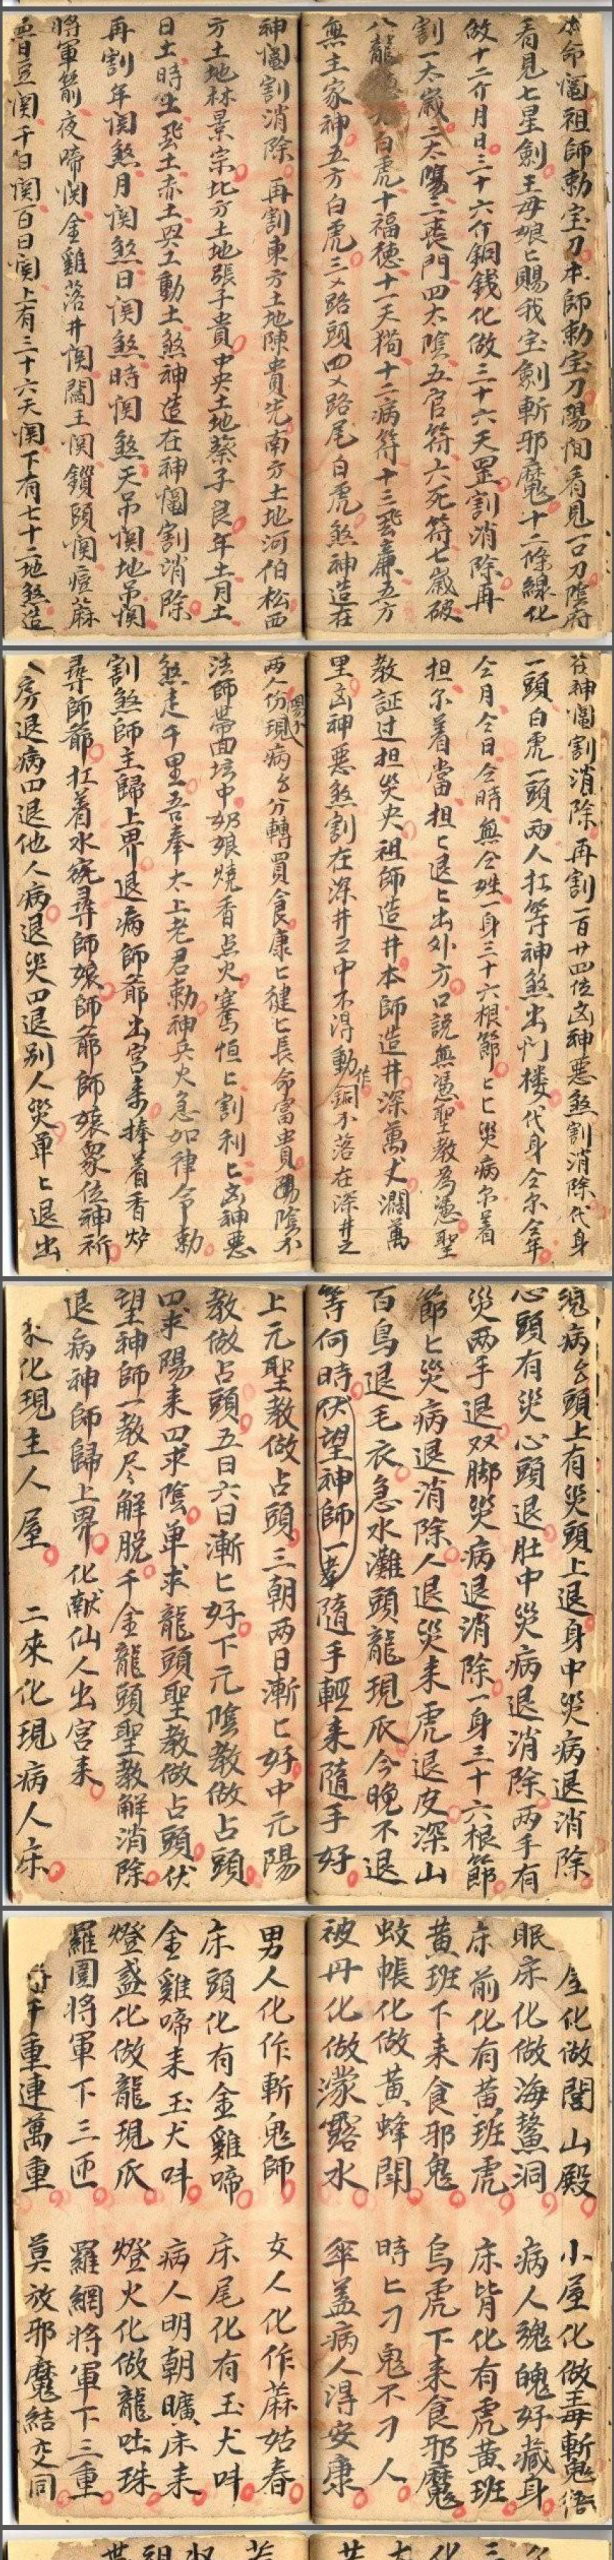 本命壇祖師勅宝刀本師勅宝刀陽间看見一口刀陰府
看見七星劍王母娘匕賜我宝劍斬邪魔十二條線化
做十二个月日三十六个銅錢化做三十六天罡割消除再
割一太歲二太陽三喪門四太陰五官符六死符七歲破
八龍 九白虎十福德十一天狗十二病符十三飛廉五方
無主家神五方白虎三乂路頭四乂路尾白虎煞神造在
神壇割消除再割東方土地陳貴先南方土地河伯松西
方土地林景宗北方土地張子貴中央土地蔡子良年土月土
日土時土飛土赤土興工動土煞神造在神壇割消除
再割年関煞月関煞日関煞時関煞天吊関地吊関
將軍箭夜啼関金雞落井関閻王関鎖頭関痘蔴
関千日関百日関上有三十六天関下有七十二地煞造
在神壇割消除再割一百廿四位凶神惡煞割消除代身
一頭白虎一頭两人扛等神煞出門楼代身今尔今年
今月今日今時無仝姓一身三十六根節匕匕災病尔着
担尔着當担匕退匕出外方口説無憑聖教為憑聖
教証过担災央祖師造井本師造井深萬丈濶萬
里凶神惡煞割在深井之中不得動作銅不落在深井之
两人份現病乡分轉買食康匕健匕長命富貴陽陰不
法師帶面培中奶娘燒香点火騫恒匕割利匕凶神惡
煞走千里吾奉太上老君勅神兵火急如律令勅
割煞師主歸上界退病師爺出宮来捧着香炉
尋師爺扛着水碗尋師娘師爺師娘衆位神祈
八房退病四退他人病退災四退别人災單匕退出
现病乡頭上有災頭上退身中災病退消除
心頭有災心頭退肚中災病退消除两手有
災两手退双脚災病退消除一身三十六根節
節匕災病退消除人退災来虎退皮深山
百鳥退毛衣急水灘頭龍現爪今晚不退
等何時伏望神師一奉隨手輕来隨手好
上元聖教做占頭三朝两日漸匕好中元陽
教做占頭五日六日漸匕好下元陰教做占頭
四求陽来四求陰單求龍頭聖教做占頭伏
望神師一教尽解脱千金龍頭聖教解消除
退病神師歸上界化献仙人出宮来
来化現主人屋 二來化現病人床
屋化做閭山殿 小屋化做毒斬鬼
眠床化做海鰲洞 病人魂魄好藏身
床前化有黄班虎 床背化有虎黄班
黄班下来食邪鬼 烏虎下来食邪魔
蚊帳化做黄蜂鬧 時匕刁鬼不刁人
被丹化做濛露水 傘盖病人得安康
男人化作斬鬼師 女人化作蔴姑春
床頭化有金雞啼 床尾化有玉犬吽
金雞啼来玉犬吽 病人明朝曠床来
燈盞化做龍現爪 燈火化做龍吐珠
羅圍將軍下三匝 羅網將軍下三重
千重連萬重 莫放邪魔結交同